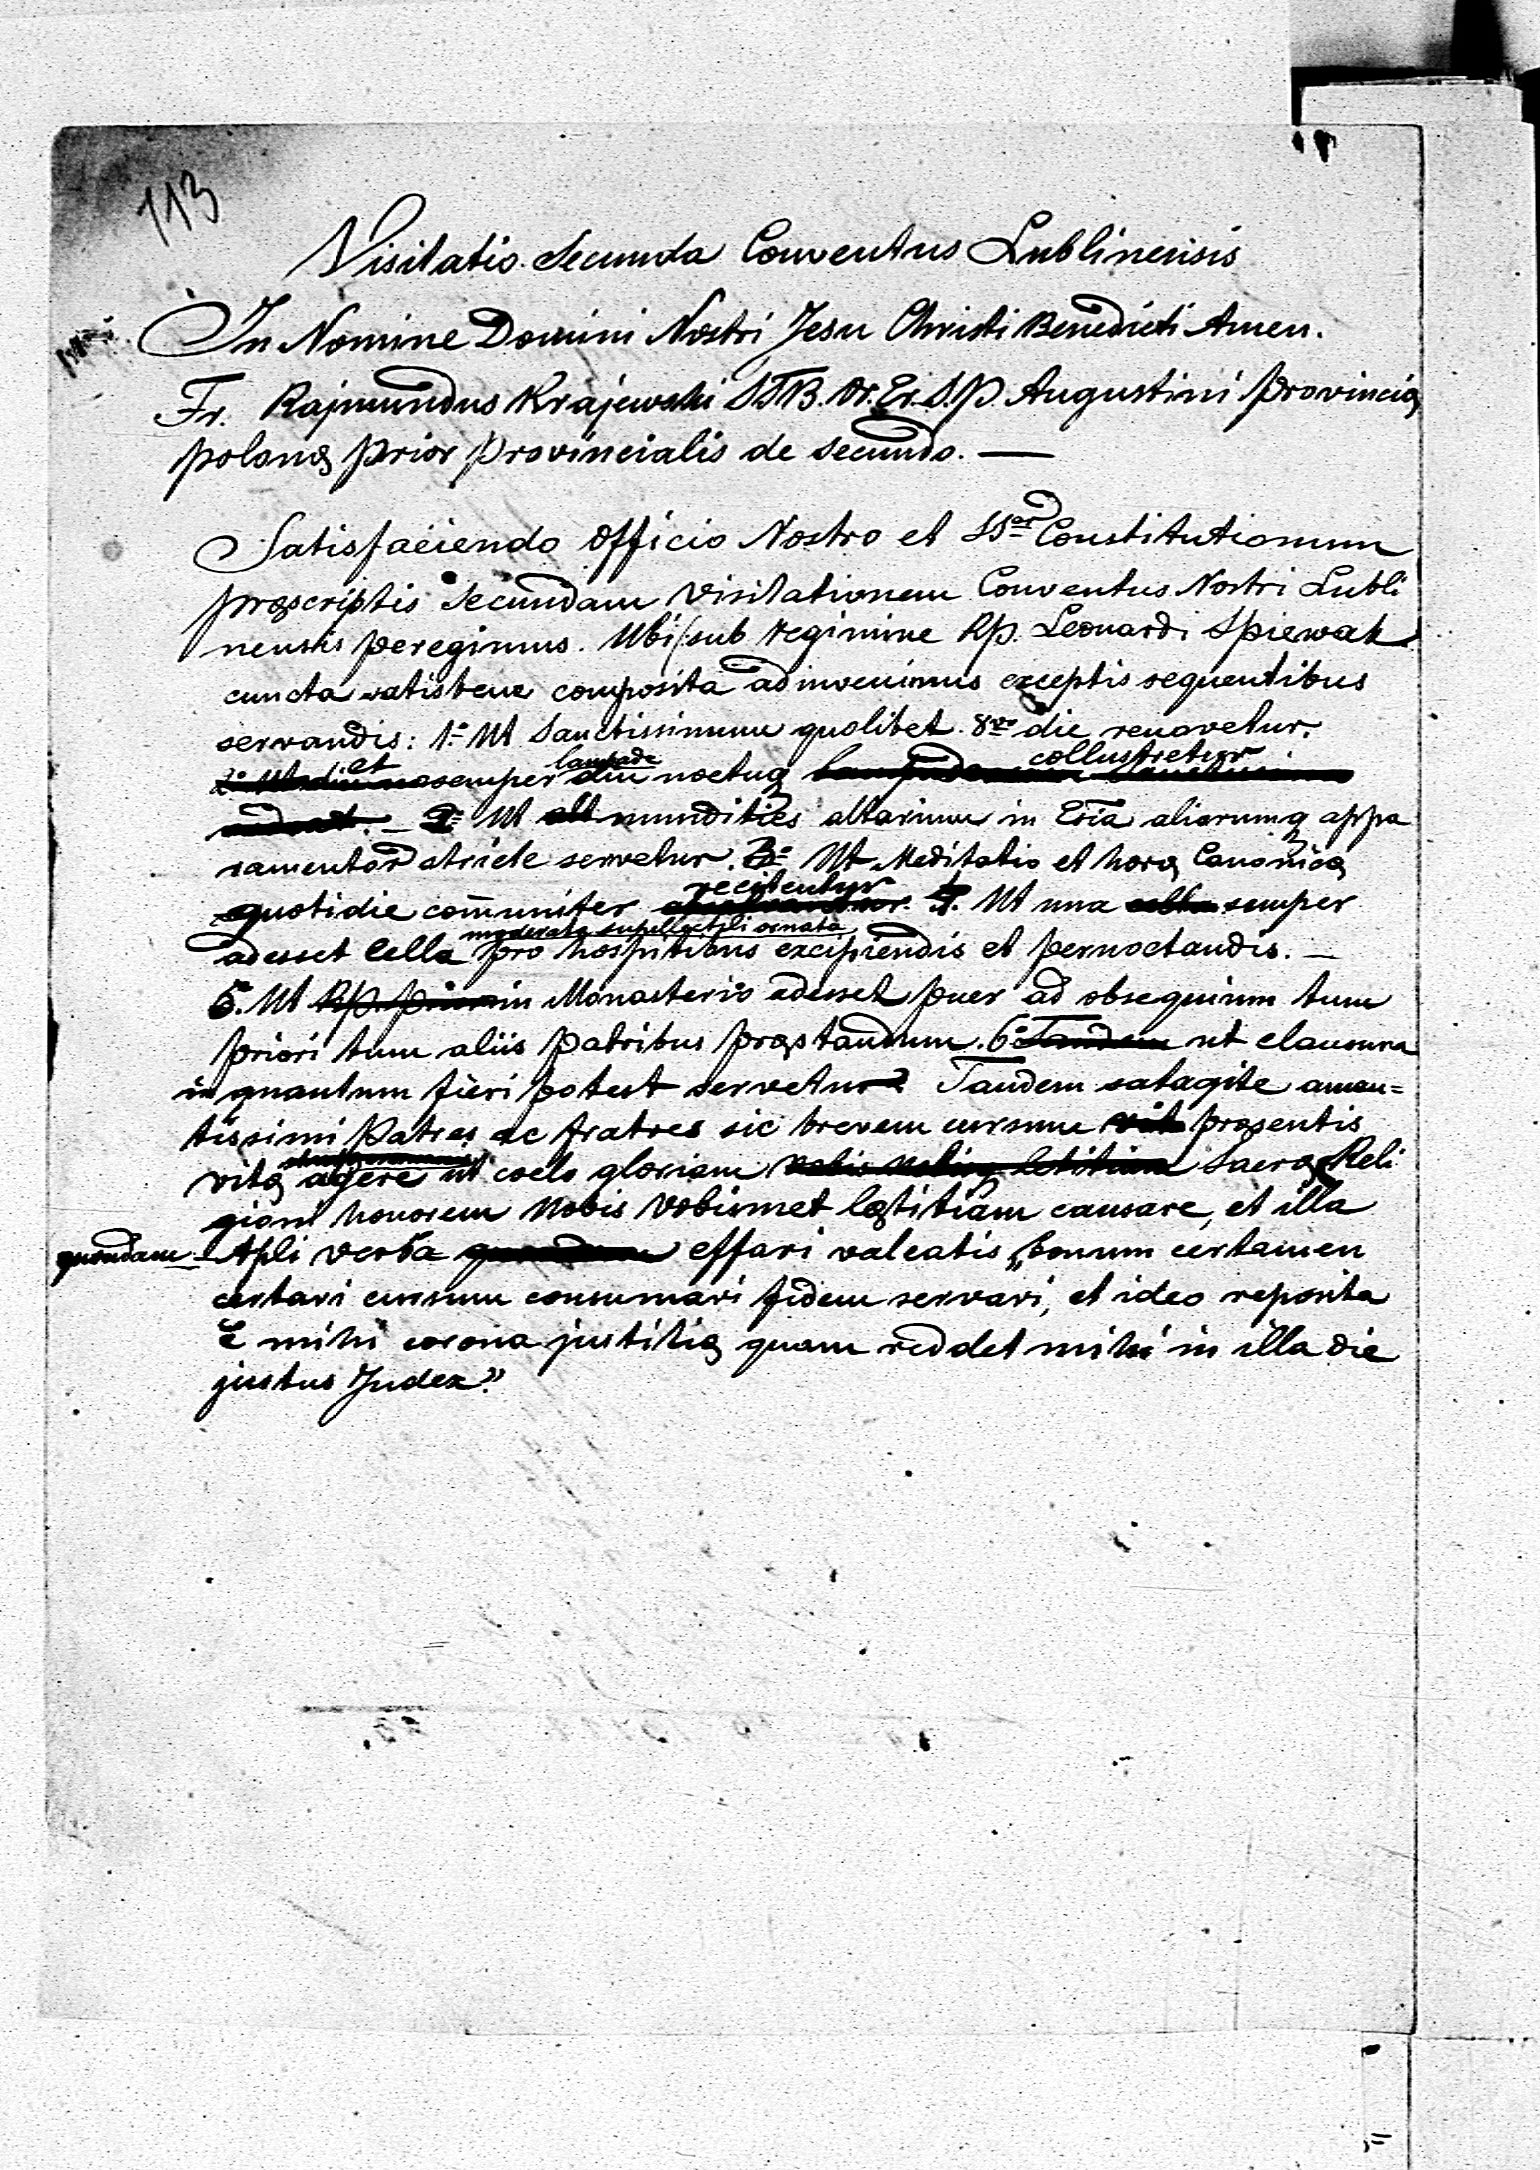 113
Visitatio Secunda Conventus Lublinensis
In Nomine Domini Nostri Jesu Christi Benedicti Amen.
Fr. Rajmundus Krajewski STB. Or. Er. S. P. Augustini Provinciæ
polonæ prior provincialis de secundo. —
Satisfaciendo officio Nostro et SS^or Constitutionum
præscriptis secundam visitationem Conventus Nostri Lubli
nensis peregimus. Ubi sub regimine Rp. Leonardi Spiewak
cuncta satis bene composita adinvenimus exceptis sequentibus
servandis: 1° Ut Sanctissimum quolibet 8^vo die renovetur.
et semper lampade diu noctuq collustretur
2° Ut mundities altarium in Ecia aliorumq appa
ramentor stricte servetur. 3° Ut Meditatio et horæ Canonicæ
quotidie com̄uniter recitentur. 4. Ut una semper
adesset Cella moderata supellectili ornata pro hospitibus excipiendis et pernoctandis. —
5. Ut in Monasterio adesset puer ad obsequium tum
priori tum aliis patribus præstandum. 6° Tandem ut clausura
in quantum fieri potest servetur. Tandem satagite aman=
tissimi Patres ac fratres sic brevem cursum præsentis
vitæ agere ut coelo gloriam Sacræ Reli
gioni honorem Nobis Vobismet lætitiam causare, et illa
quondam Apli verba effari valeatis „bonum certamen
certavi cursum consumavi fidem servavi, et ideo reposita
ē mihi corona justitiæ quam reddet mihi in illa die
justus Judex"